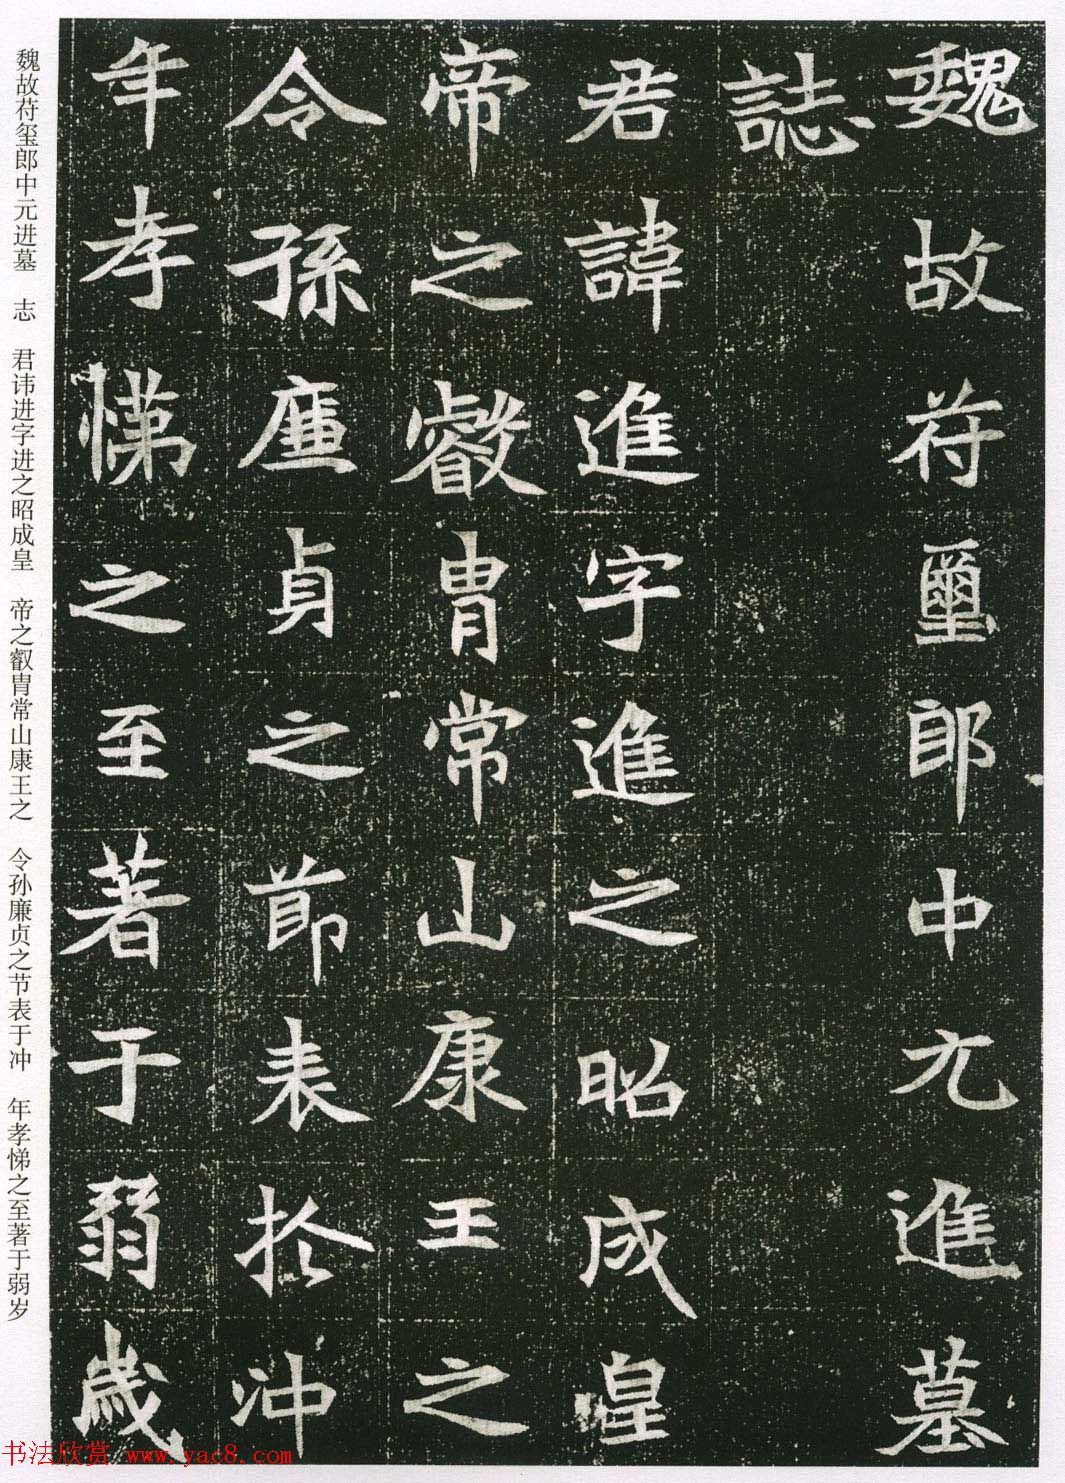 魏故苻璽郎中元進墓
誌
君諱進字進之昭成皇
帝之叡冑常山康王之
令孫廉貞之節表於沖
年孝悌之至著于弱歲
魏故苻玺郎中元进墓 志 君讳进字进之昭成皇 帝之叡胄常山康王之 令孙廉贞之节表于冲 年孝悌之至著于弱岁
书法欣赏 www.yac8.com